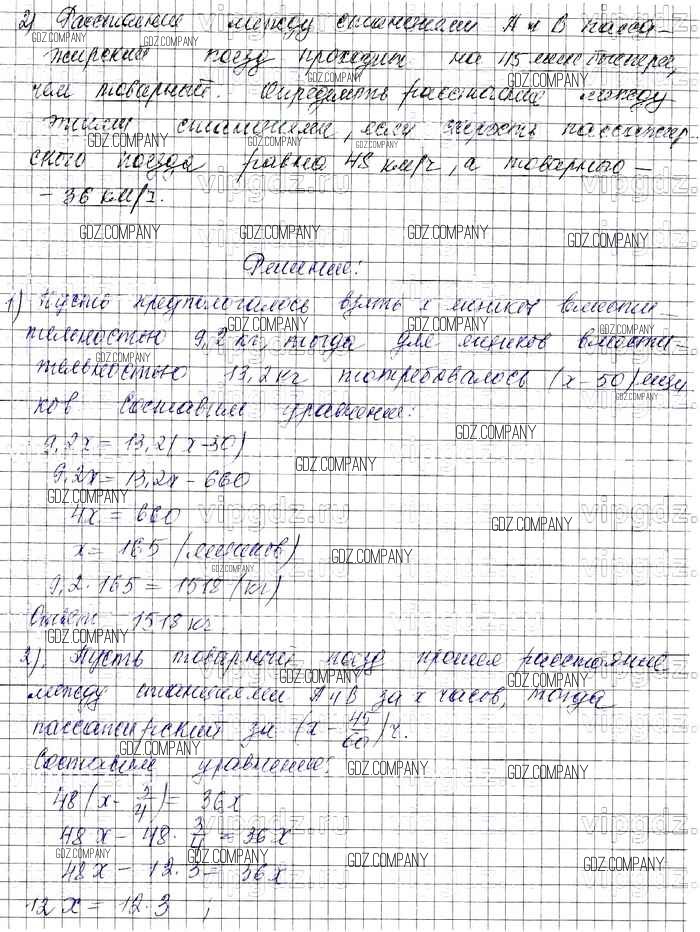 2) Расстояние между станциями А и В пасса-
жирский поезд проходит на 45 мин быстрее,
чем товарный. Определить расстояние между
этими станциями, если скорость пассажир
ского поезда равна 48 км/ч, а товарного -
- 36 км/ч.
Решение:
1) Пусть предполагалось взять x ящиков вмести
тельностью 9,2 кг, тогда для ящиков вмести-
тельностью 13,2 кг потребовалось (x - 50) ящи
ков Составим уравнение:
9,2x = 13,2(x-50)
9,2x = 13,2x - 660
4x = 660
x = 165 (ящиков)
9,2 · 165 = 1518 (кг)
Ответ 1518 кг
2). Пусть товарный поезд прошел расстояние
между станциями А и В за x часов, тогда
пассажирский за (x - 45/60) ч.
Составим уравнение:
48(x - 3/4) = 36x
48x - 48 · 3/4 = 36x
48x - 12·3 = 36x
12x = 12·3 ;
GDZ.COMPANY
vipgdz.ru